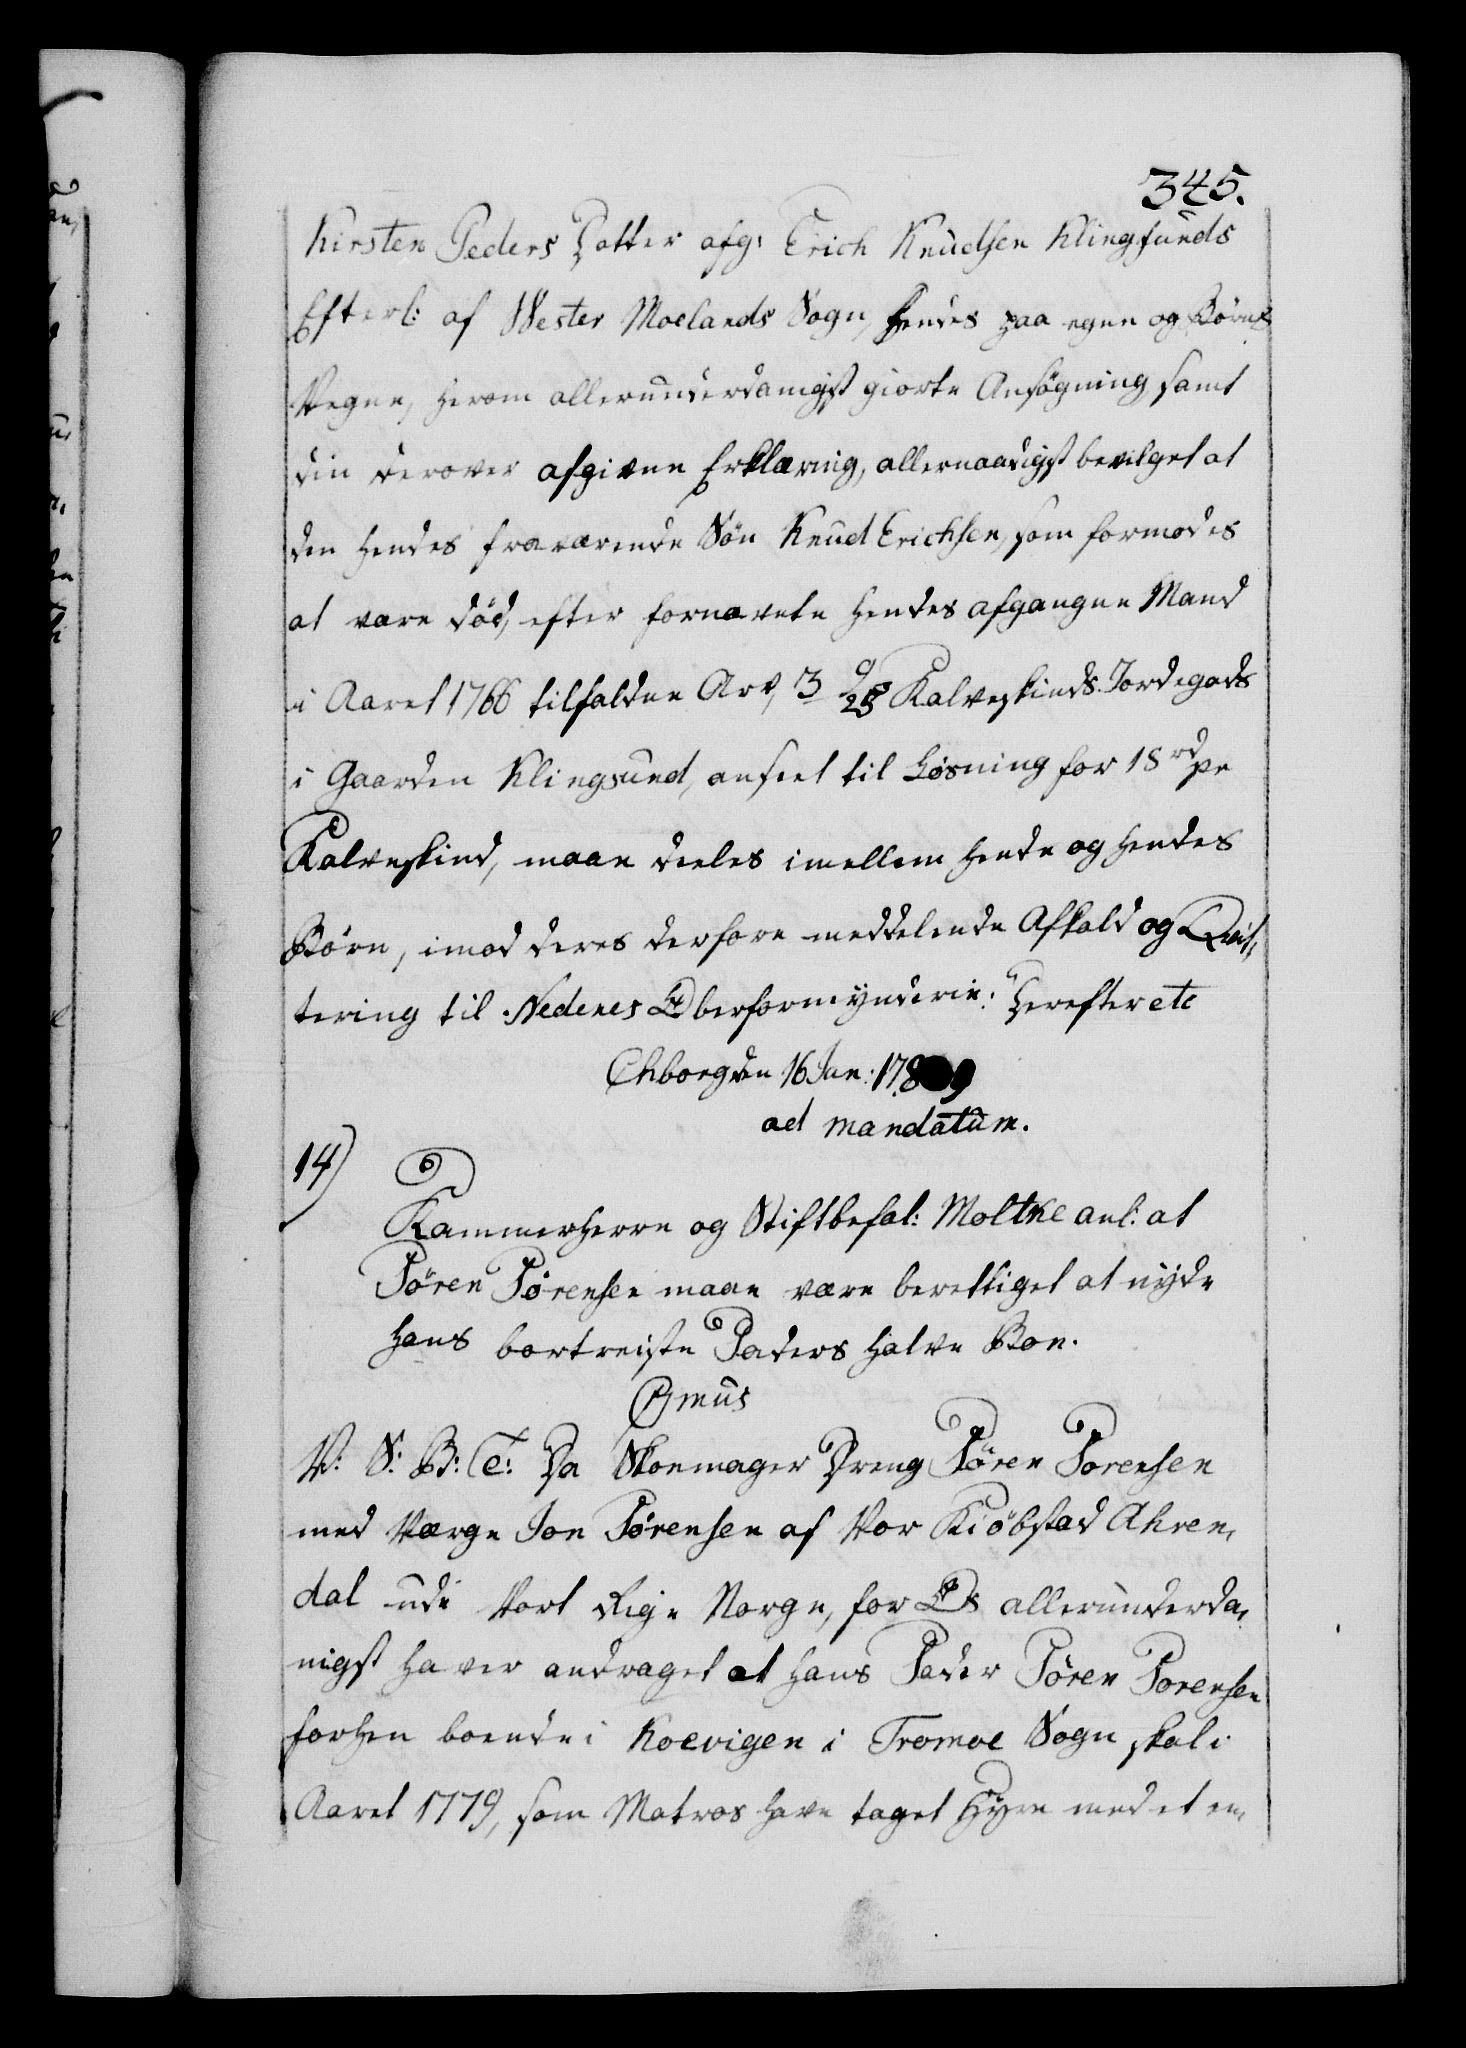 345.
Kirsten Peders Datter afg: Erich Knudsen Klingsunds
Efterl: af Wester Moelands Sogn, hendes paa egne og Børns
Vegne, herom allerunderdanigst giorte Ansøgning samt
din derover afgivne Erklæring, allernaadigst bevilget at
den hendes fraværende Søn Knud Erichsen, som formodes
at være død, efter fornævnte hendes afgangne Mand
i Aaret 1766 tilfaldne Arv, 3 9/25 Kalveskinds Jordegods
i Gaarden Klingsund, anseet til Løsning for 18 rd pr
Kalveskind, maae deeles imellem hende og hendes
Børn, imod deres derfore meddelende Afkald og Qvit,
tering til Nedenes Overformynderie. Derefter etc
Chborg den 16 Jan: 1789
ad mandatum.
14)
Kammerherre og Stiftbefal: Moltke anl: at
Sören Sørensen maae være berettiget at nyde
hans bortreiste Faders halve Boe.
Cmus
V: S: B: T: Da Skoemager Dreng Sören Sorensen
med Værge Jon Sørensen af Vor Kiöbstad Ahren,
dal udi Vort Rige Norge, for Os allerunderda,
nigst haver andraget at hans Fader Sören Sorensen
forhen boende i Koevigen i Tromoe Sogn skal i
Aaret 1779, som Matros have taget Hyre med et en,